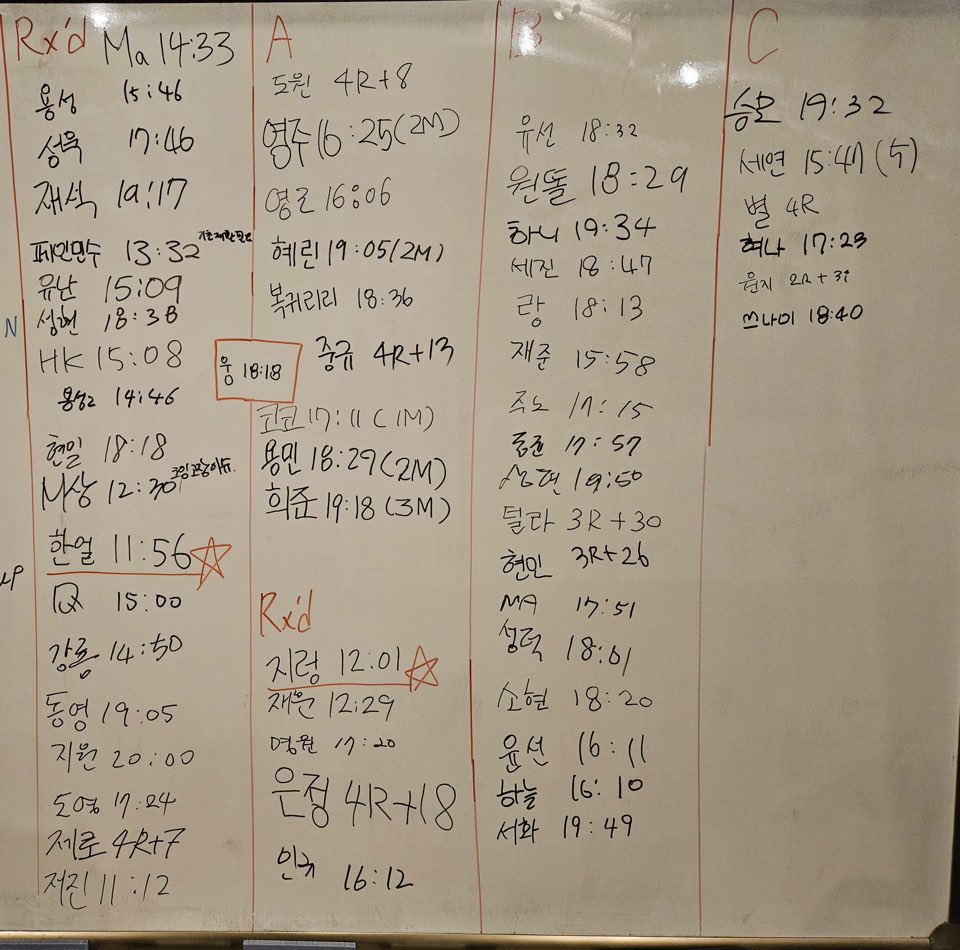 Rx'd
Ma 14:33
용성 15:46
성욱 17:46
재석 19:17
페인민수 13:32
유난 15:09
성현 18:38
HK 15:08
용성2 14:46
현일 18:18
M상 12:30
한얼 11:56
Q 15:00
강룡 14:50
동영 19:05
지원 20:00
도영 17:24
제로 4R+7
저진 11:12
N
A
도원 4R+8
영주 16:25(2M)
영로 16:06
혜린 19:05(2M)
복귀리리 18:36
웅 18:18
중규 4R+13
코코 17:11(1M)
용민 18:29(2M)
희준 19:18(3M)
Rx'd
지렁 12:01
재원 12:29
명원 17:20
은정 4R+18
16:12
B
유선 18:32
원똘 18:29
하니 19:34
세진 18:47
랑 18:13
재준 15:58
주노 17:15
17:57
19:50
털라 3R+30
현민 3R+26
MA 17:51
성덕 18:01
소현 18:20
윤선 16:11
하늘 16:10
서화 19:49
C
승모 19:32
세연 15:47
별 4R
혀나 17:23
윤지
쯔나미 18:40